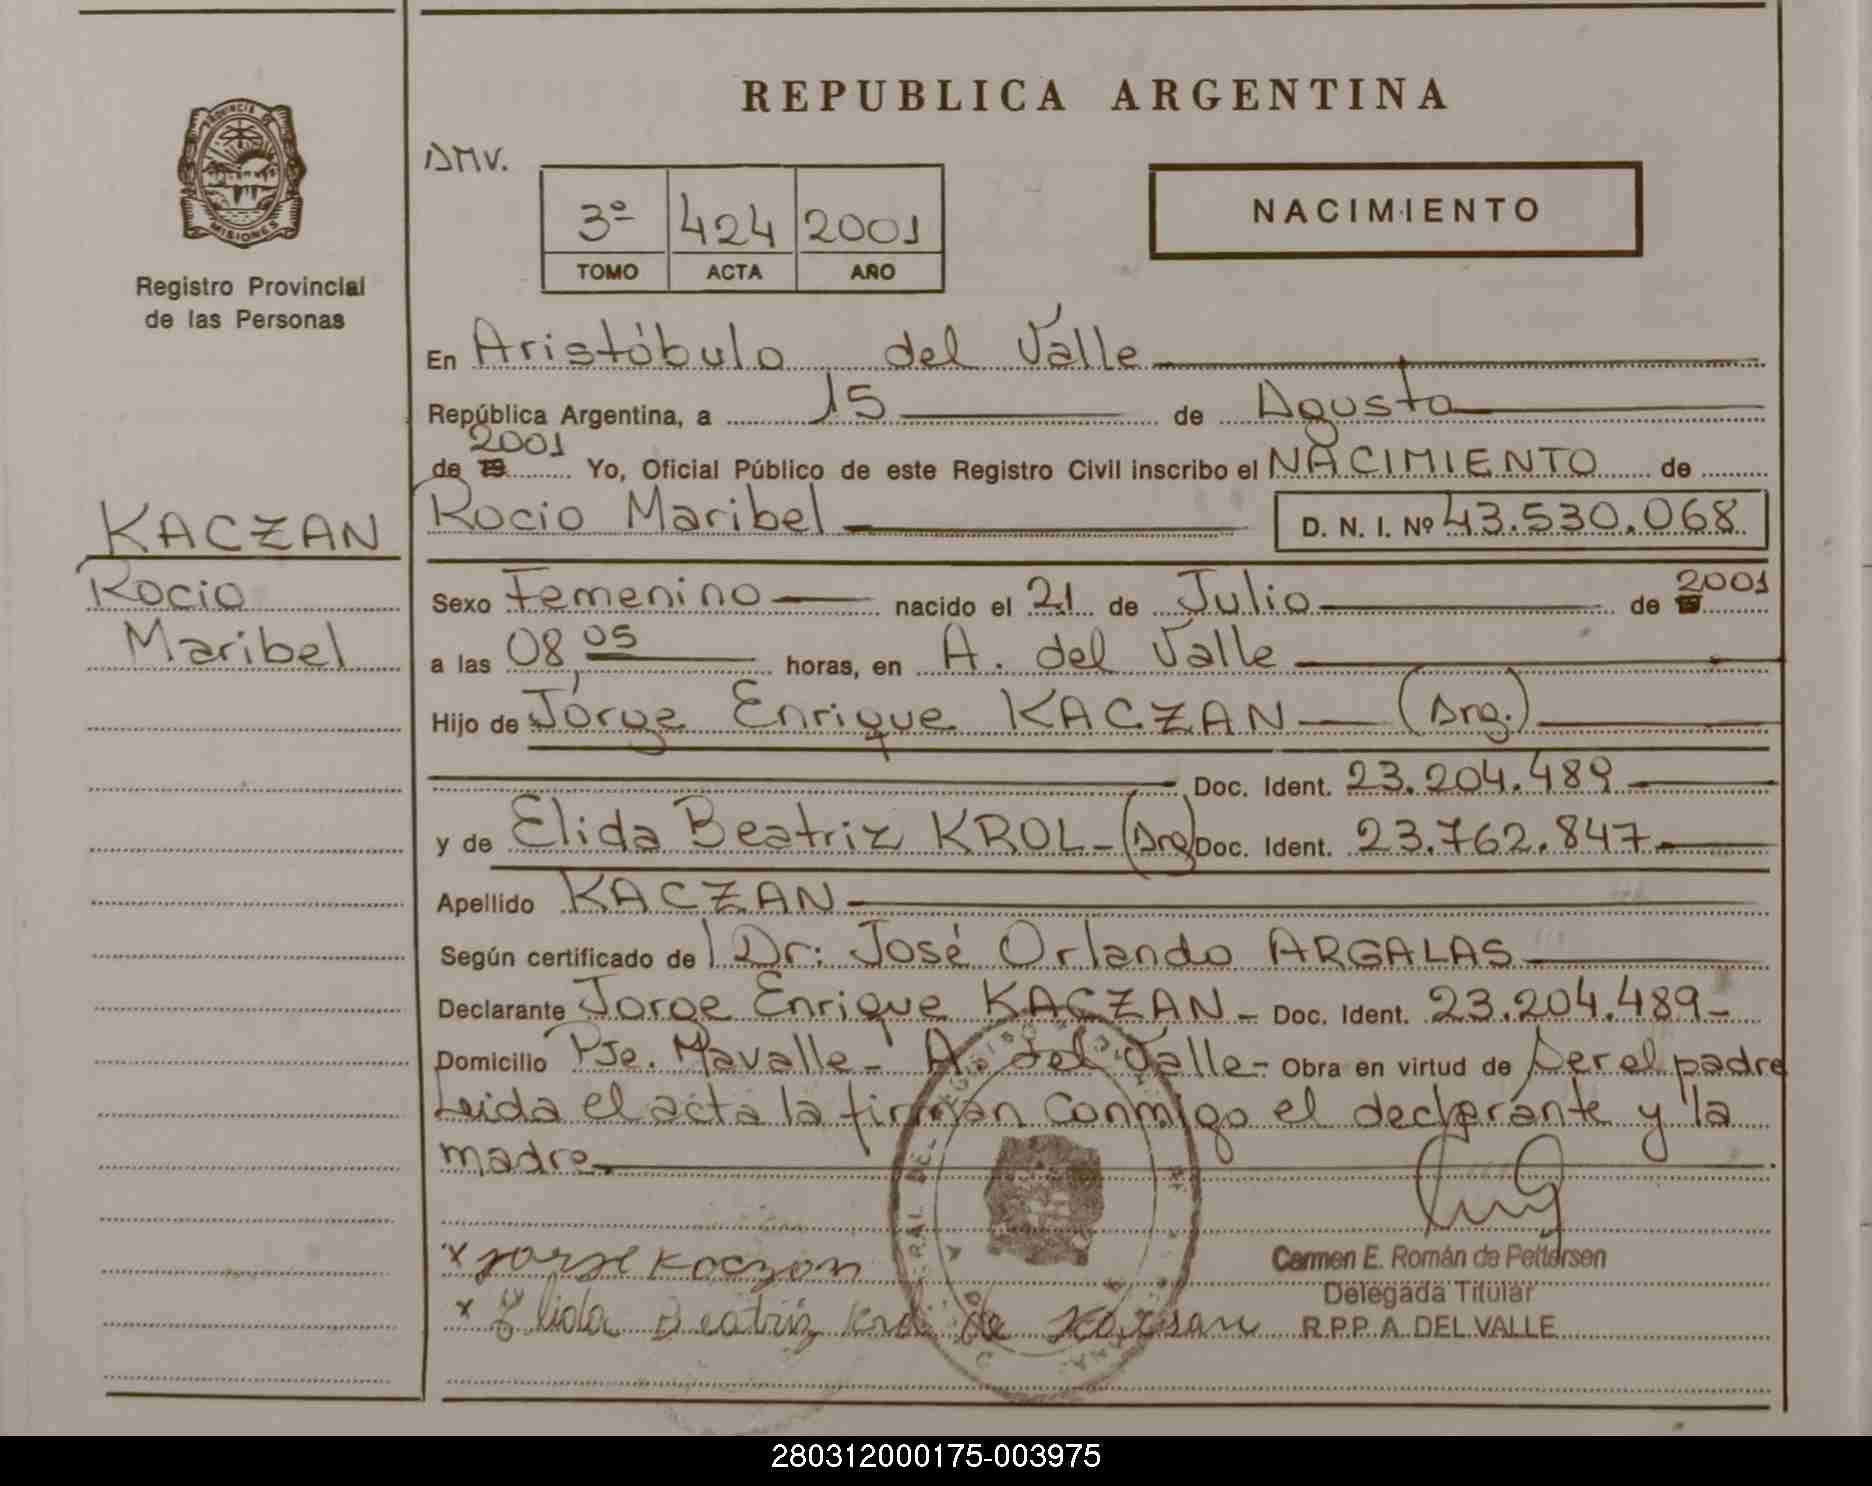 REPUBLICA ARGENTINA
PROVINCIA DE
MISIONES
Registro Provincial
de las Personas
DMV.
3º 424 2001
TOMO ACTA AÑO
NACIMIENTO
En Aristóbulo del Valle
República Argentina, a 15 de Agosto
2001
de 19 Yo, Oficial Público de este Registro Civil inscribo el NACIMIENTO de
KACZAN
Rocio
Maribel
Rocio Maribel D. N. I. Nº 43.530.068
Sexo Femenino nacido el 21 de Julio de 2001
a las 08,05 horas, en A. del Valle
Hijo de Jorge Enrique KACZAN (Arg.)
Doc. Ident. 23.204.489
y de Elida Beatriz KROL - (Arg) Doc. Ident. 23.762.847
Apellido KACZAN
Según certificado de Dr: José Orlando ARGALAS
Declarante Jorge Enrique KACZAN - Doc. Ident. 23.204.489 -
Domicilio Pje. Mavalle - A. del Valle - Obra en virtud de Ser el padre
Leida el acta la firman conmigo el declarante y la
madre
x Jorge Kaczan
x Elida Beatriz Krol de Kaczan
Carmen E. Román de Pettersen
Delegada Titular
R.P.P. A. DEL VALLE
280312000175-003975